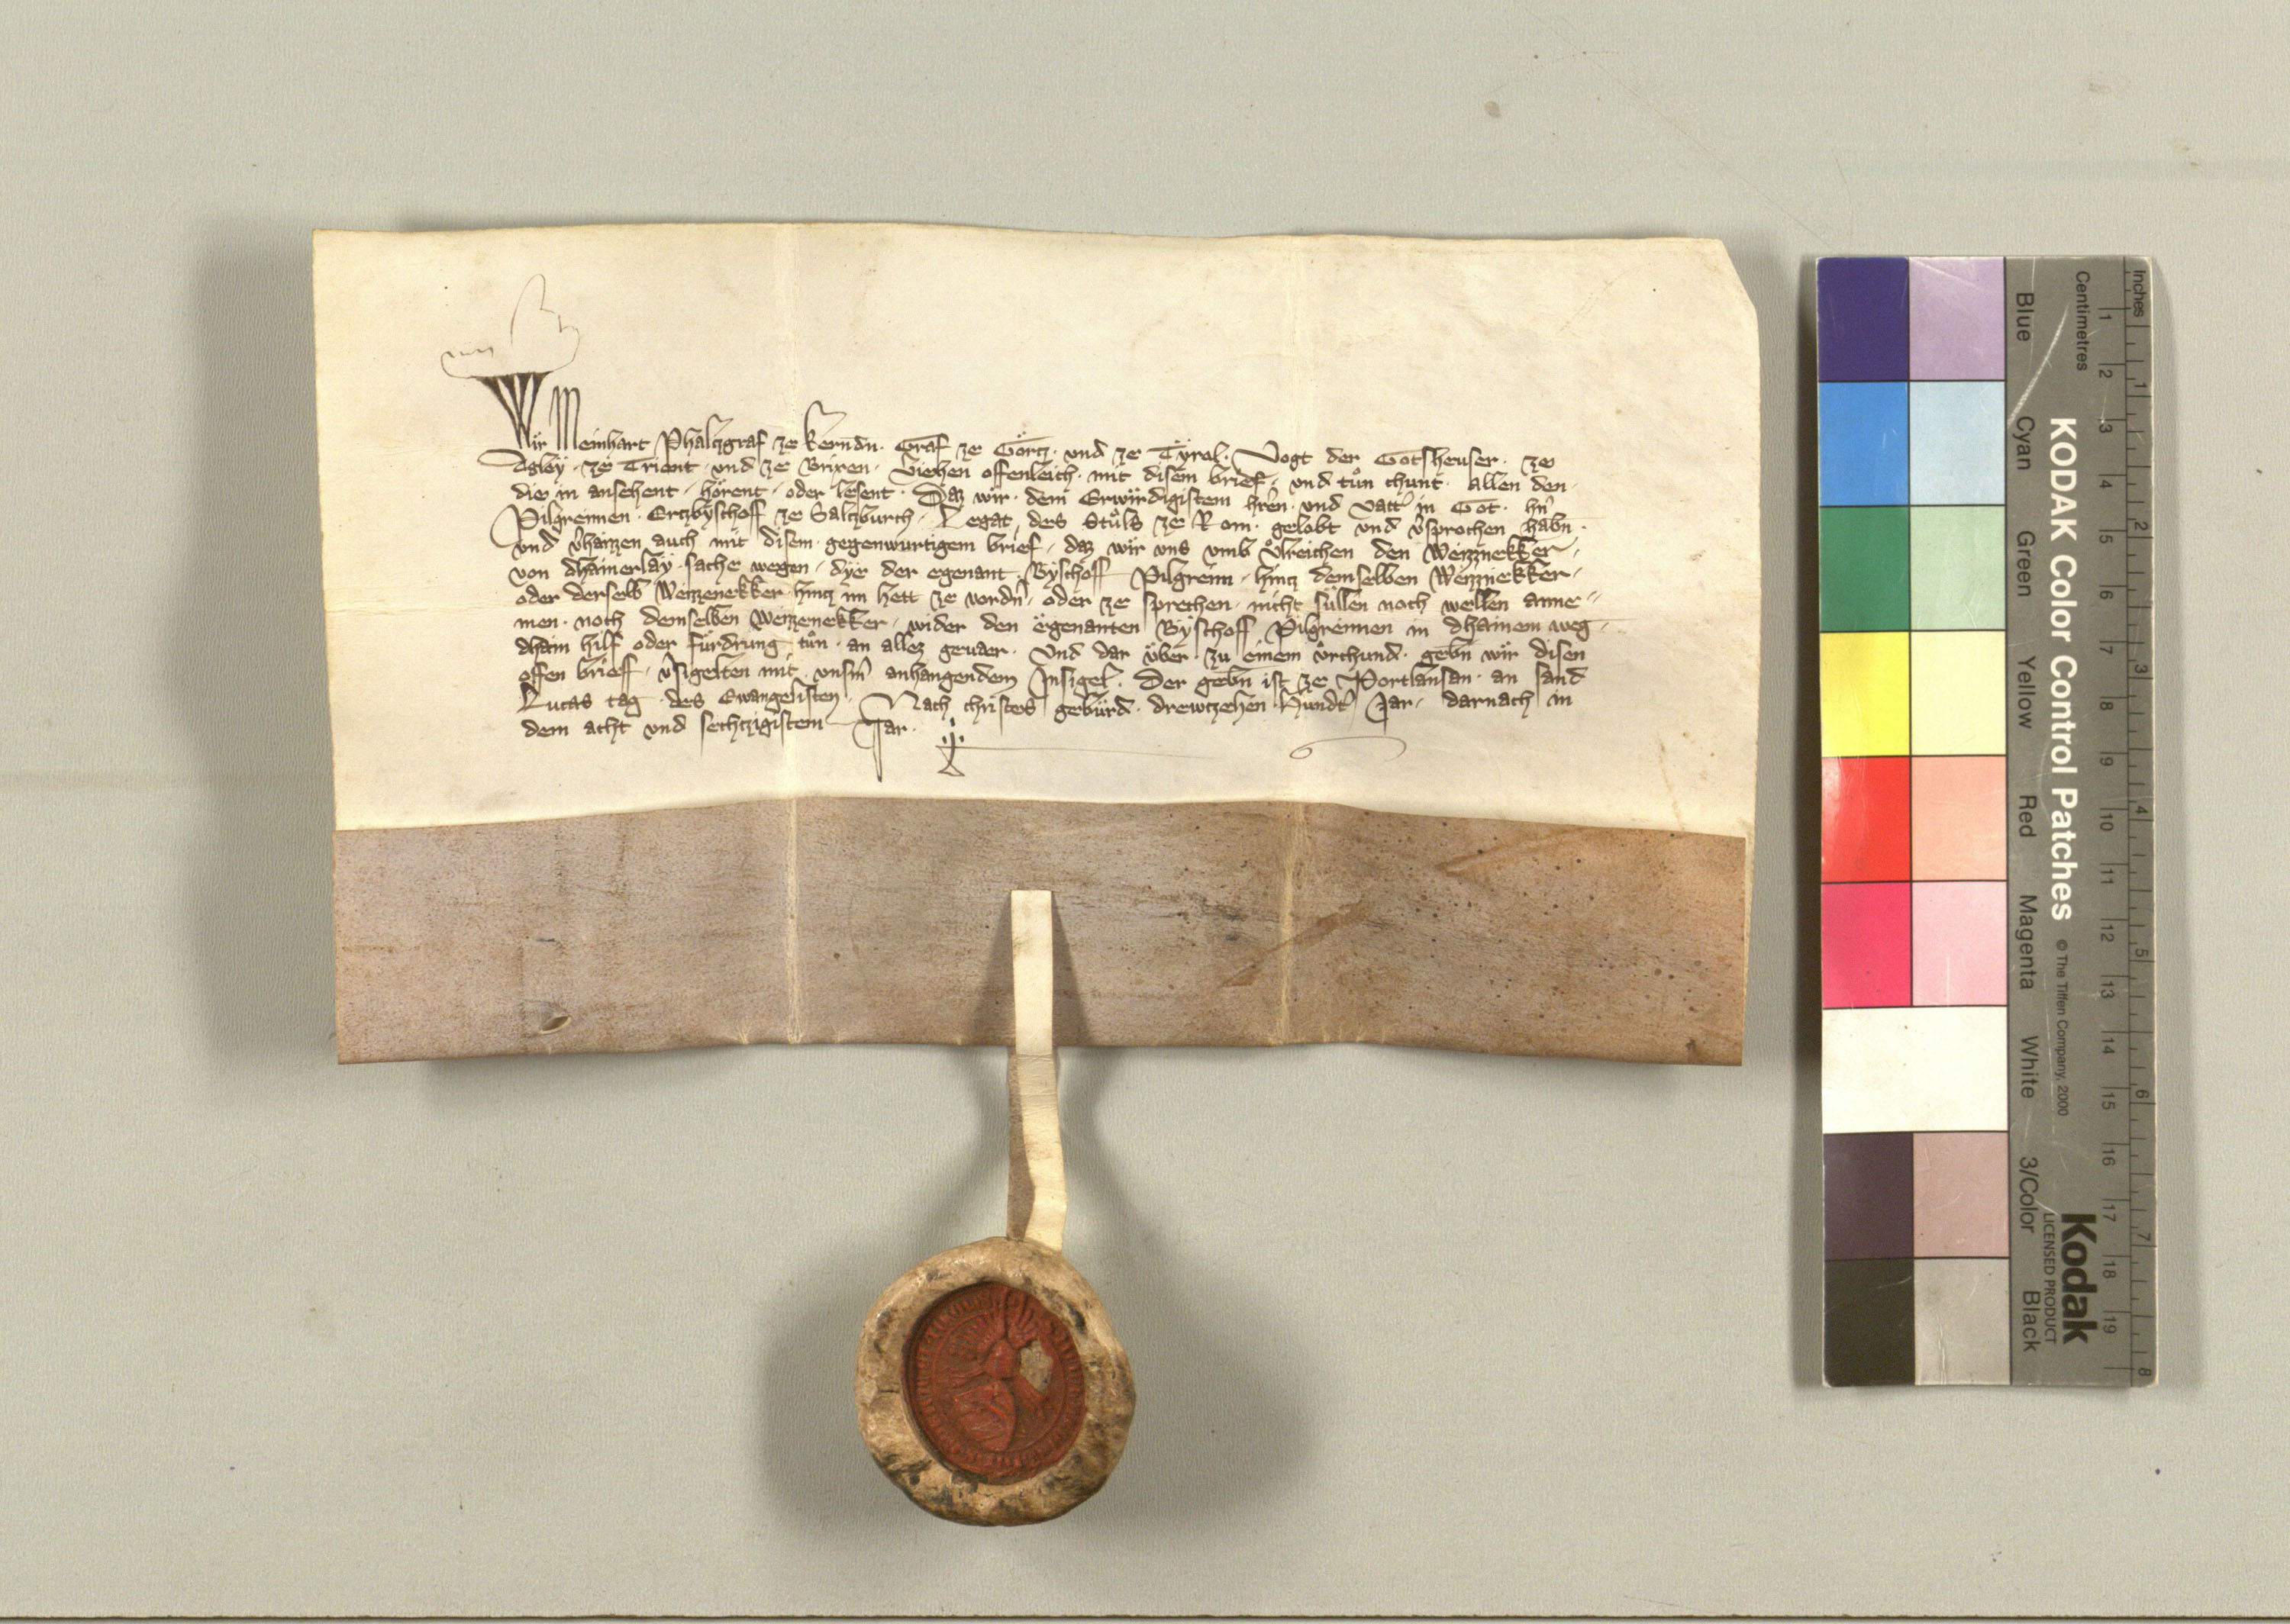 Wir Meinhart Phalczgraf ze kerndn. Graf ze Görcz. und ze Tÿral. Vogt der Gotsheuser. ze
Aglay. ze Trient. und ze Brixen. Viehen offenleich. mit disem brief. und tůn chunt. allen den.
die in ansehent. hörent. oder lesent. Daz wir. dem Erwirdigistem hren. und vatt in Got. hn
Pilgreimen. Erczbÿschoff ze Salczburch. Legat des Stůls ze Rom. gelobt und vsprochen habn.
und vhaizzen auch mit disem gegenwurtigem brief. daz wir uns umb ůlreichen den Weizznekker.
von dhainerlaÿ sache wegen. dÿe der egenant Bÿschoff Pilgreim. hincz demselben Weizznekker.
oder derselb Weizzenekker hincz im hett ze vordn. oder ze sprechen. nicht süllen noch wellen anne=
men. noch demselben Weizzenekker. wider den egenanten Bÿschoff Pilgreimen in dhainem weg.
dhain hilf oder fürdrung tůn. an allez geuaer. Und dar über. zu einem ůrchund. gebn wir disen
offen brieff. vsigelten mit unsm anhangendem Insigel. Der gebn ist ze Portlansan. an sand
Lucas tag des Ewangelisten. Nach christes gebürd. drewczehen hundt Jar. darnach in
dem acht und sechtzigistem Jar.
KODAK Color Control Patches
© The Tiffen Company, 2000
Kodak
LICENSED PRODUCT
Blue Cyan Green Yellow Red Magenta White 3/Color Black
Centimetres 1 2 3 4 5 6 7 8 9 10 11 12 13 14 15 16 17 18 19
Inches 1 2 3 4 5 6 7 8